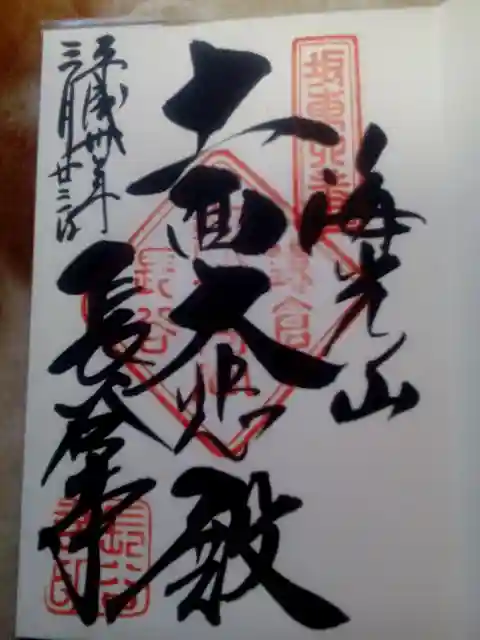 坂東四番
海光山
十一面大悲殿
鎌倉
長谷
長谷寺
平成卅年
三月廿二日